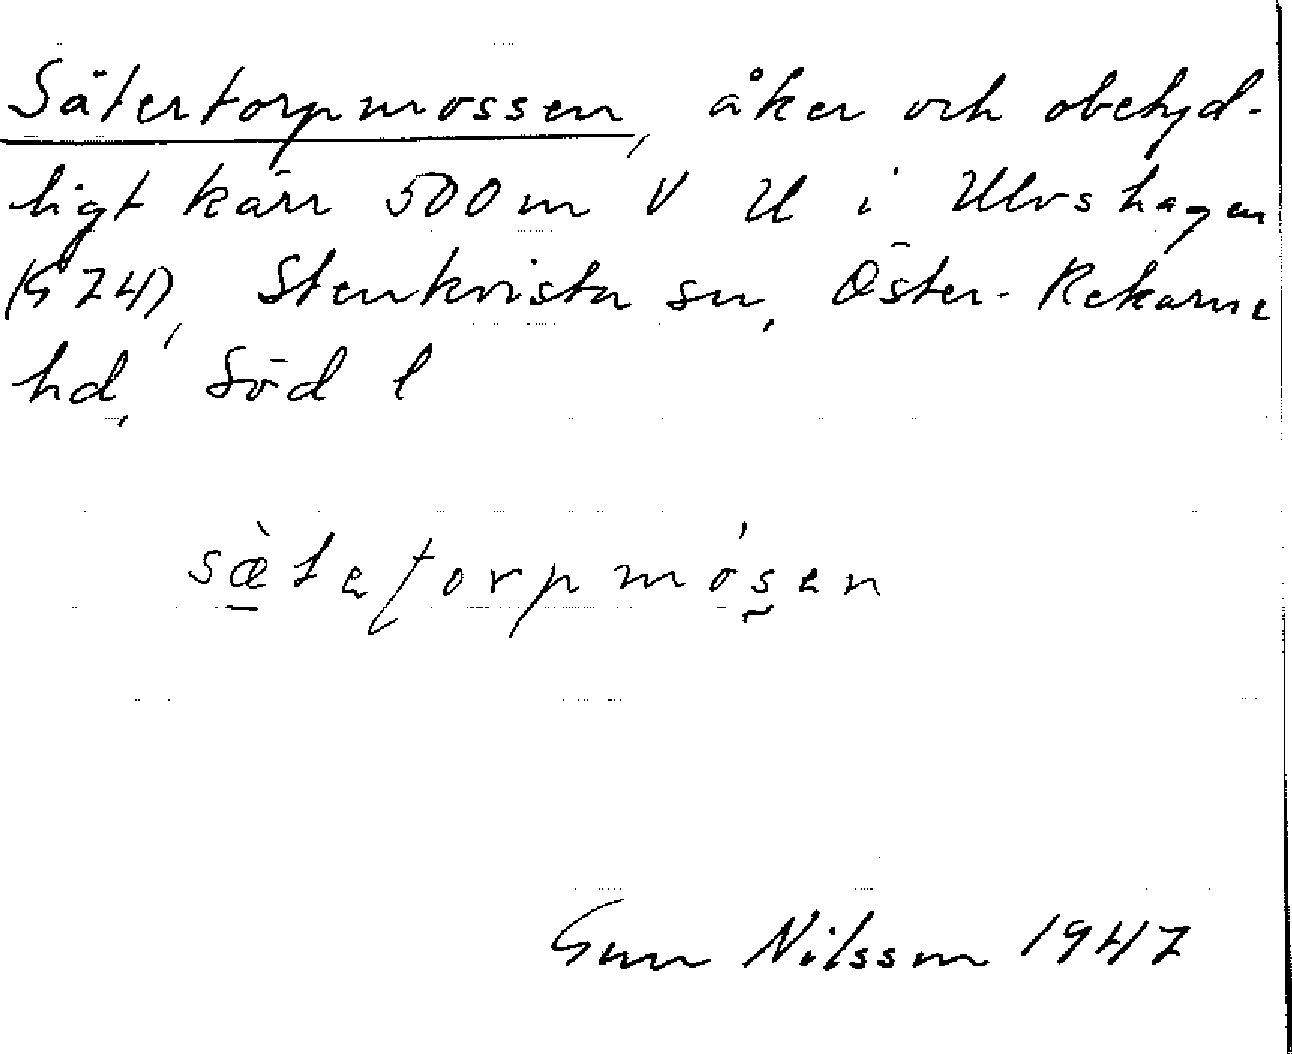 Sätertorpmossen, åker och obetyd-
ligt kärr 500 m V U i Ulvshagen
(974), Stenkvista sn, Öster-Rekarne
hd, Söd l
sæ̀tetorpmósen
Gun Nilsson 1947